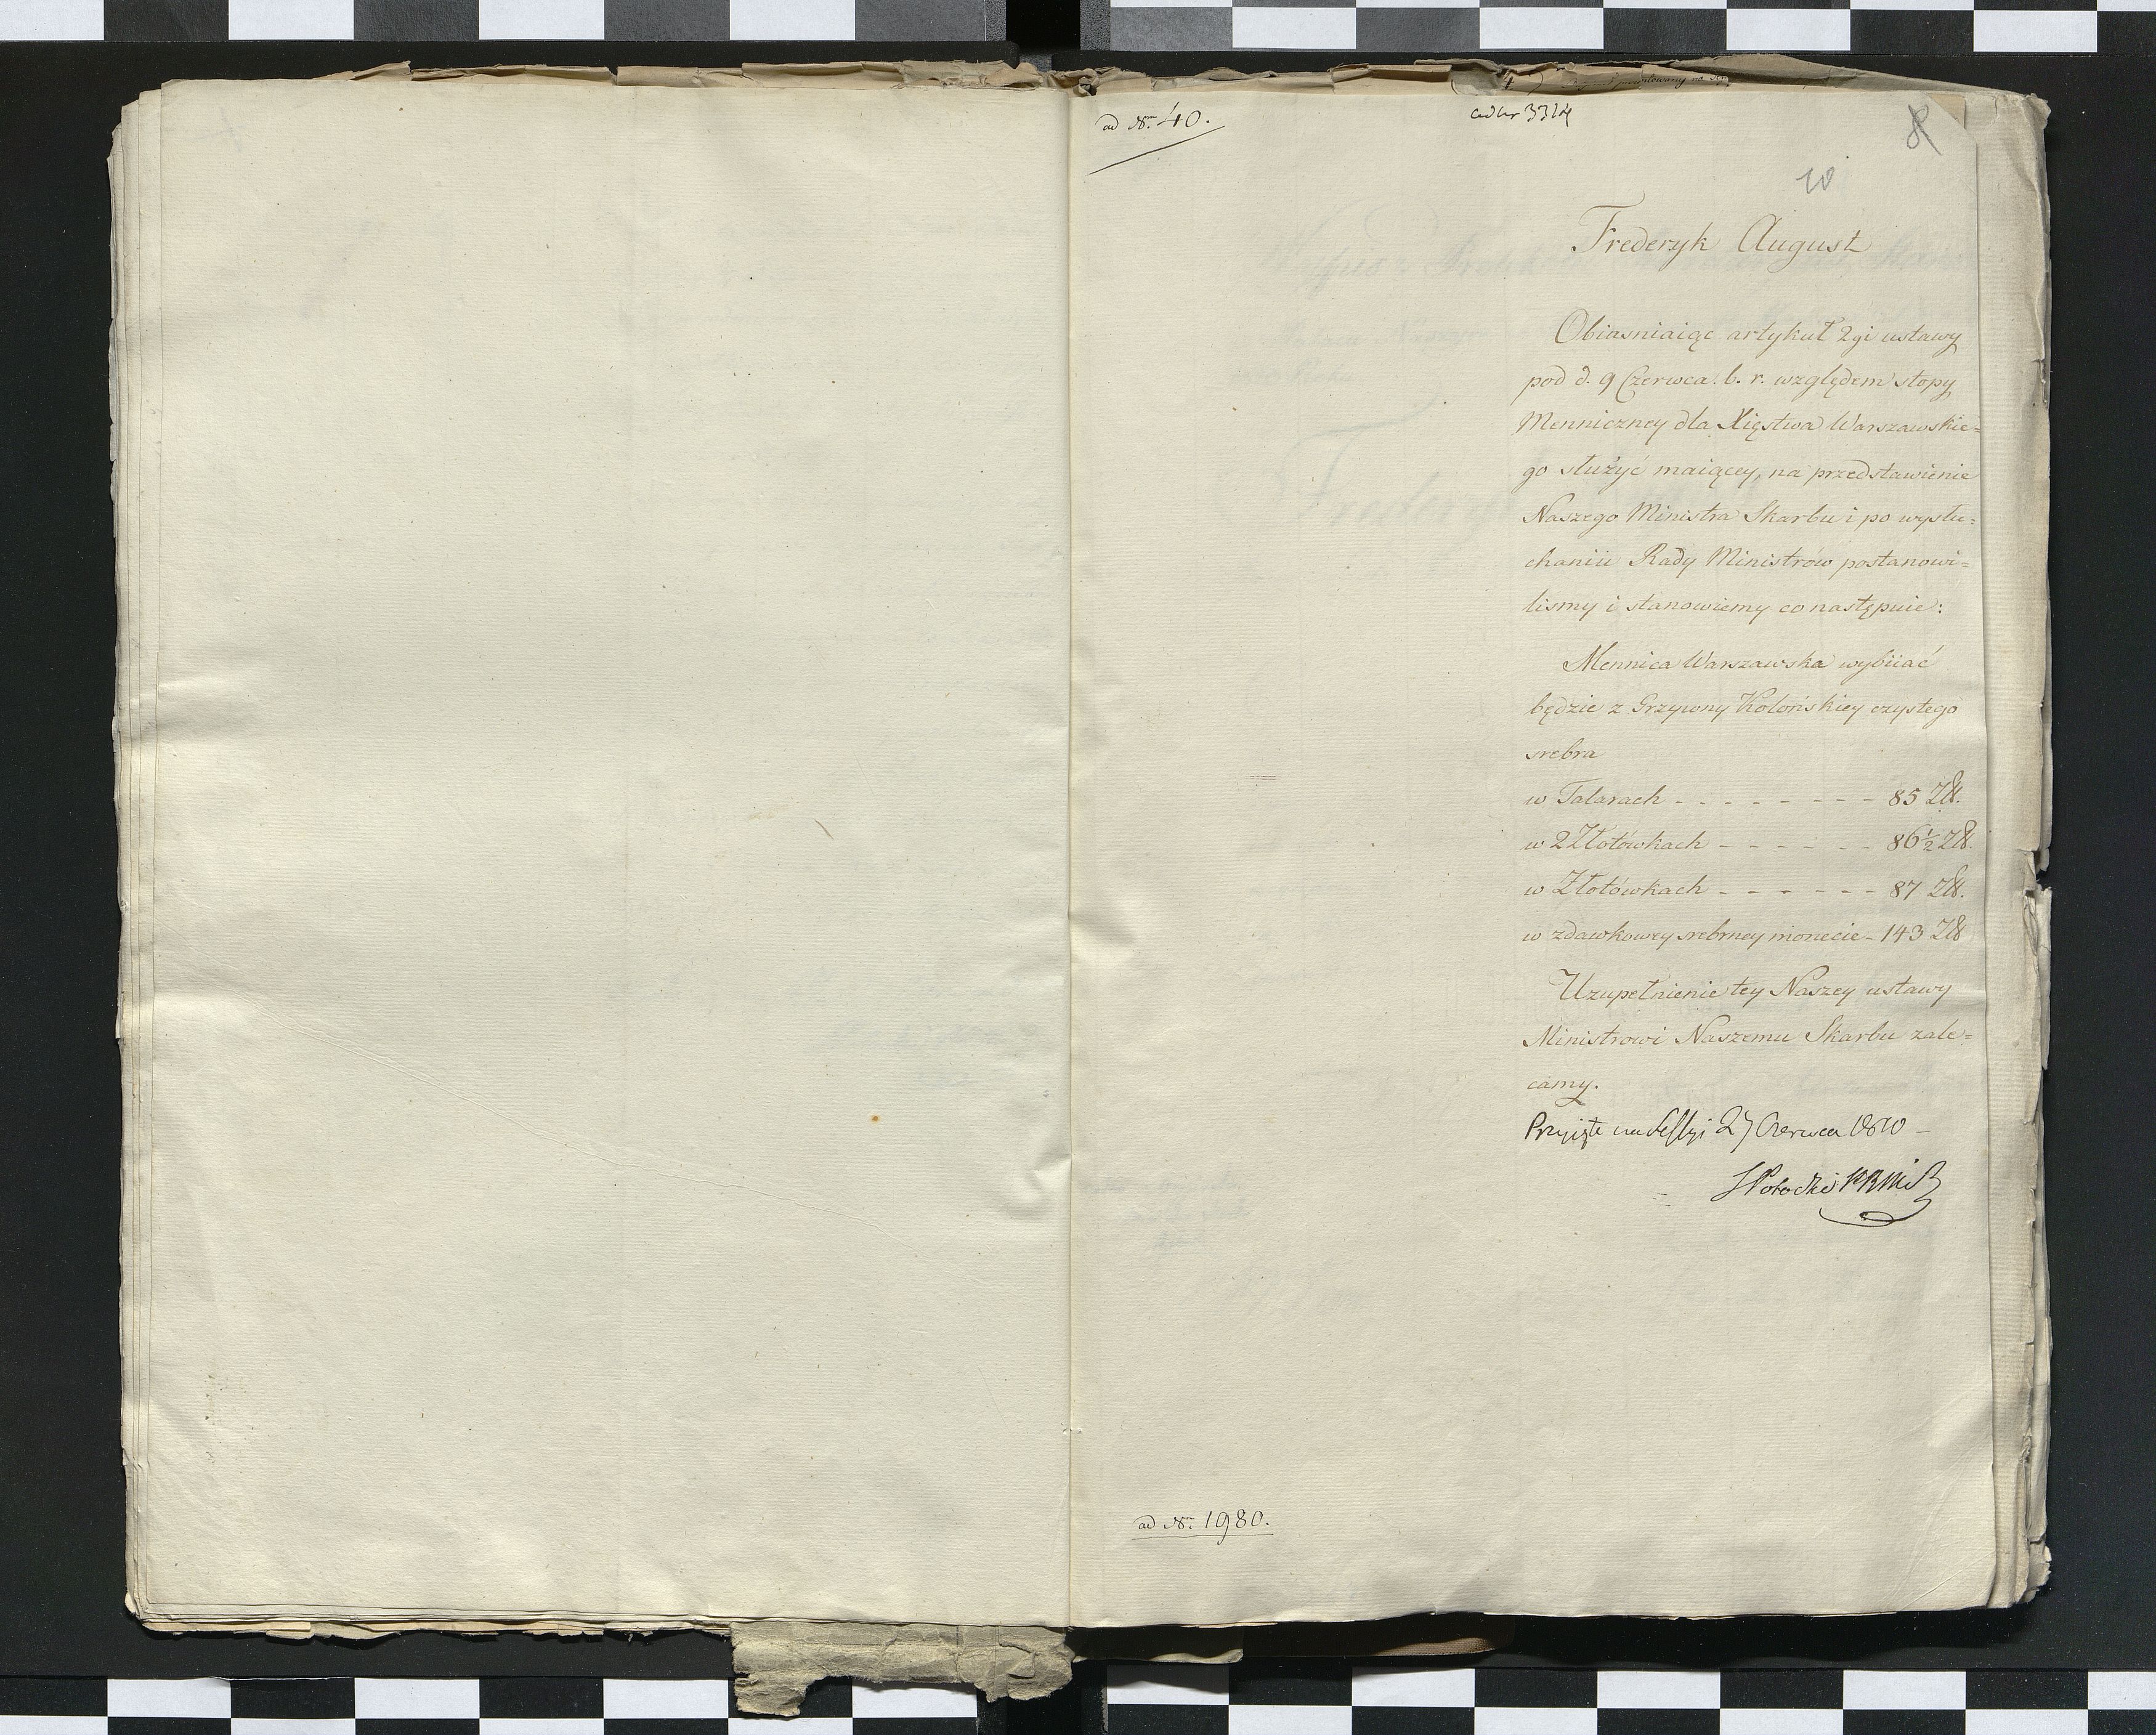 ad Nrm 40.
ad Nr 3314
8
10
Frederyk August
Obiasniaiąc artykuł 2gi ustawy
pod d. 9 Czerwca b. r. względem stopy
Menniczney dla Xięstwa Warszawskie=
go służyć maiącey, na przedstawienie
Naszego Ministra Skarbu i po wysłu=
chaniu Rady Ministrow postanowi=
lismy i stanowiemy co następuie:
Mennica Warszawska wybiiać
będzie z Grzywny Kolońskiey czystego
srebra
w Talarach - - - - - - - - 85 Zł.
w 2 Złotówkach - - - - - - 86½ Zł.
w Złotówkach - - - - - - 87 Zł.
w zdawkowey srebrney monecie - 143 Zł
Uzupełnienie tey Naszey ustawy
Ministrowi Naszemu Skarbu zale=
camy.
Przyięte na Sessyi 27 Czerwca 1810 -
Potocki
ad Nrm 1980.